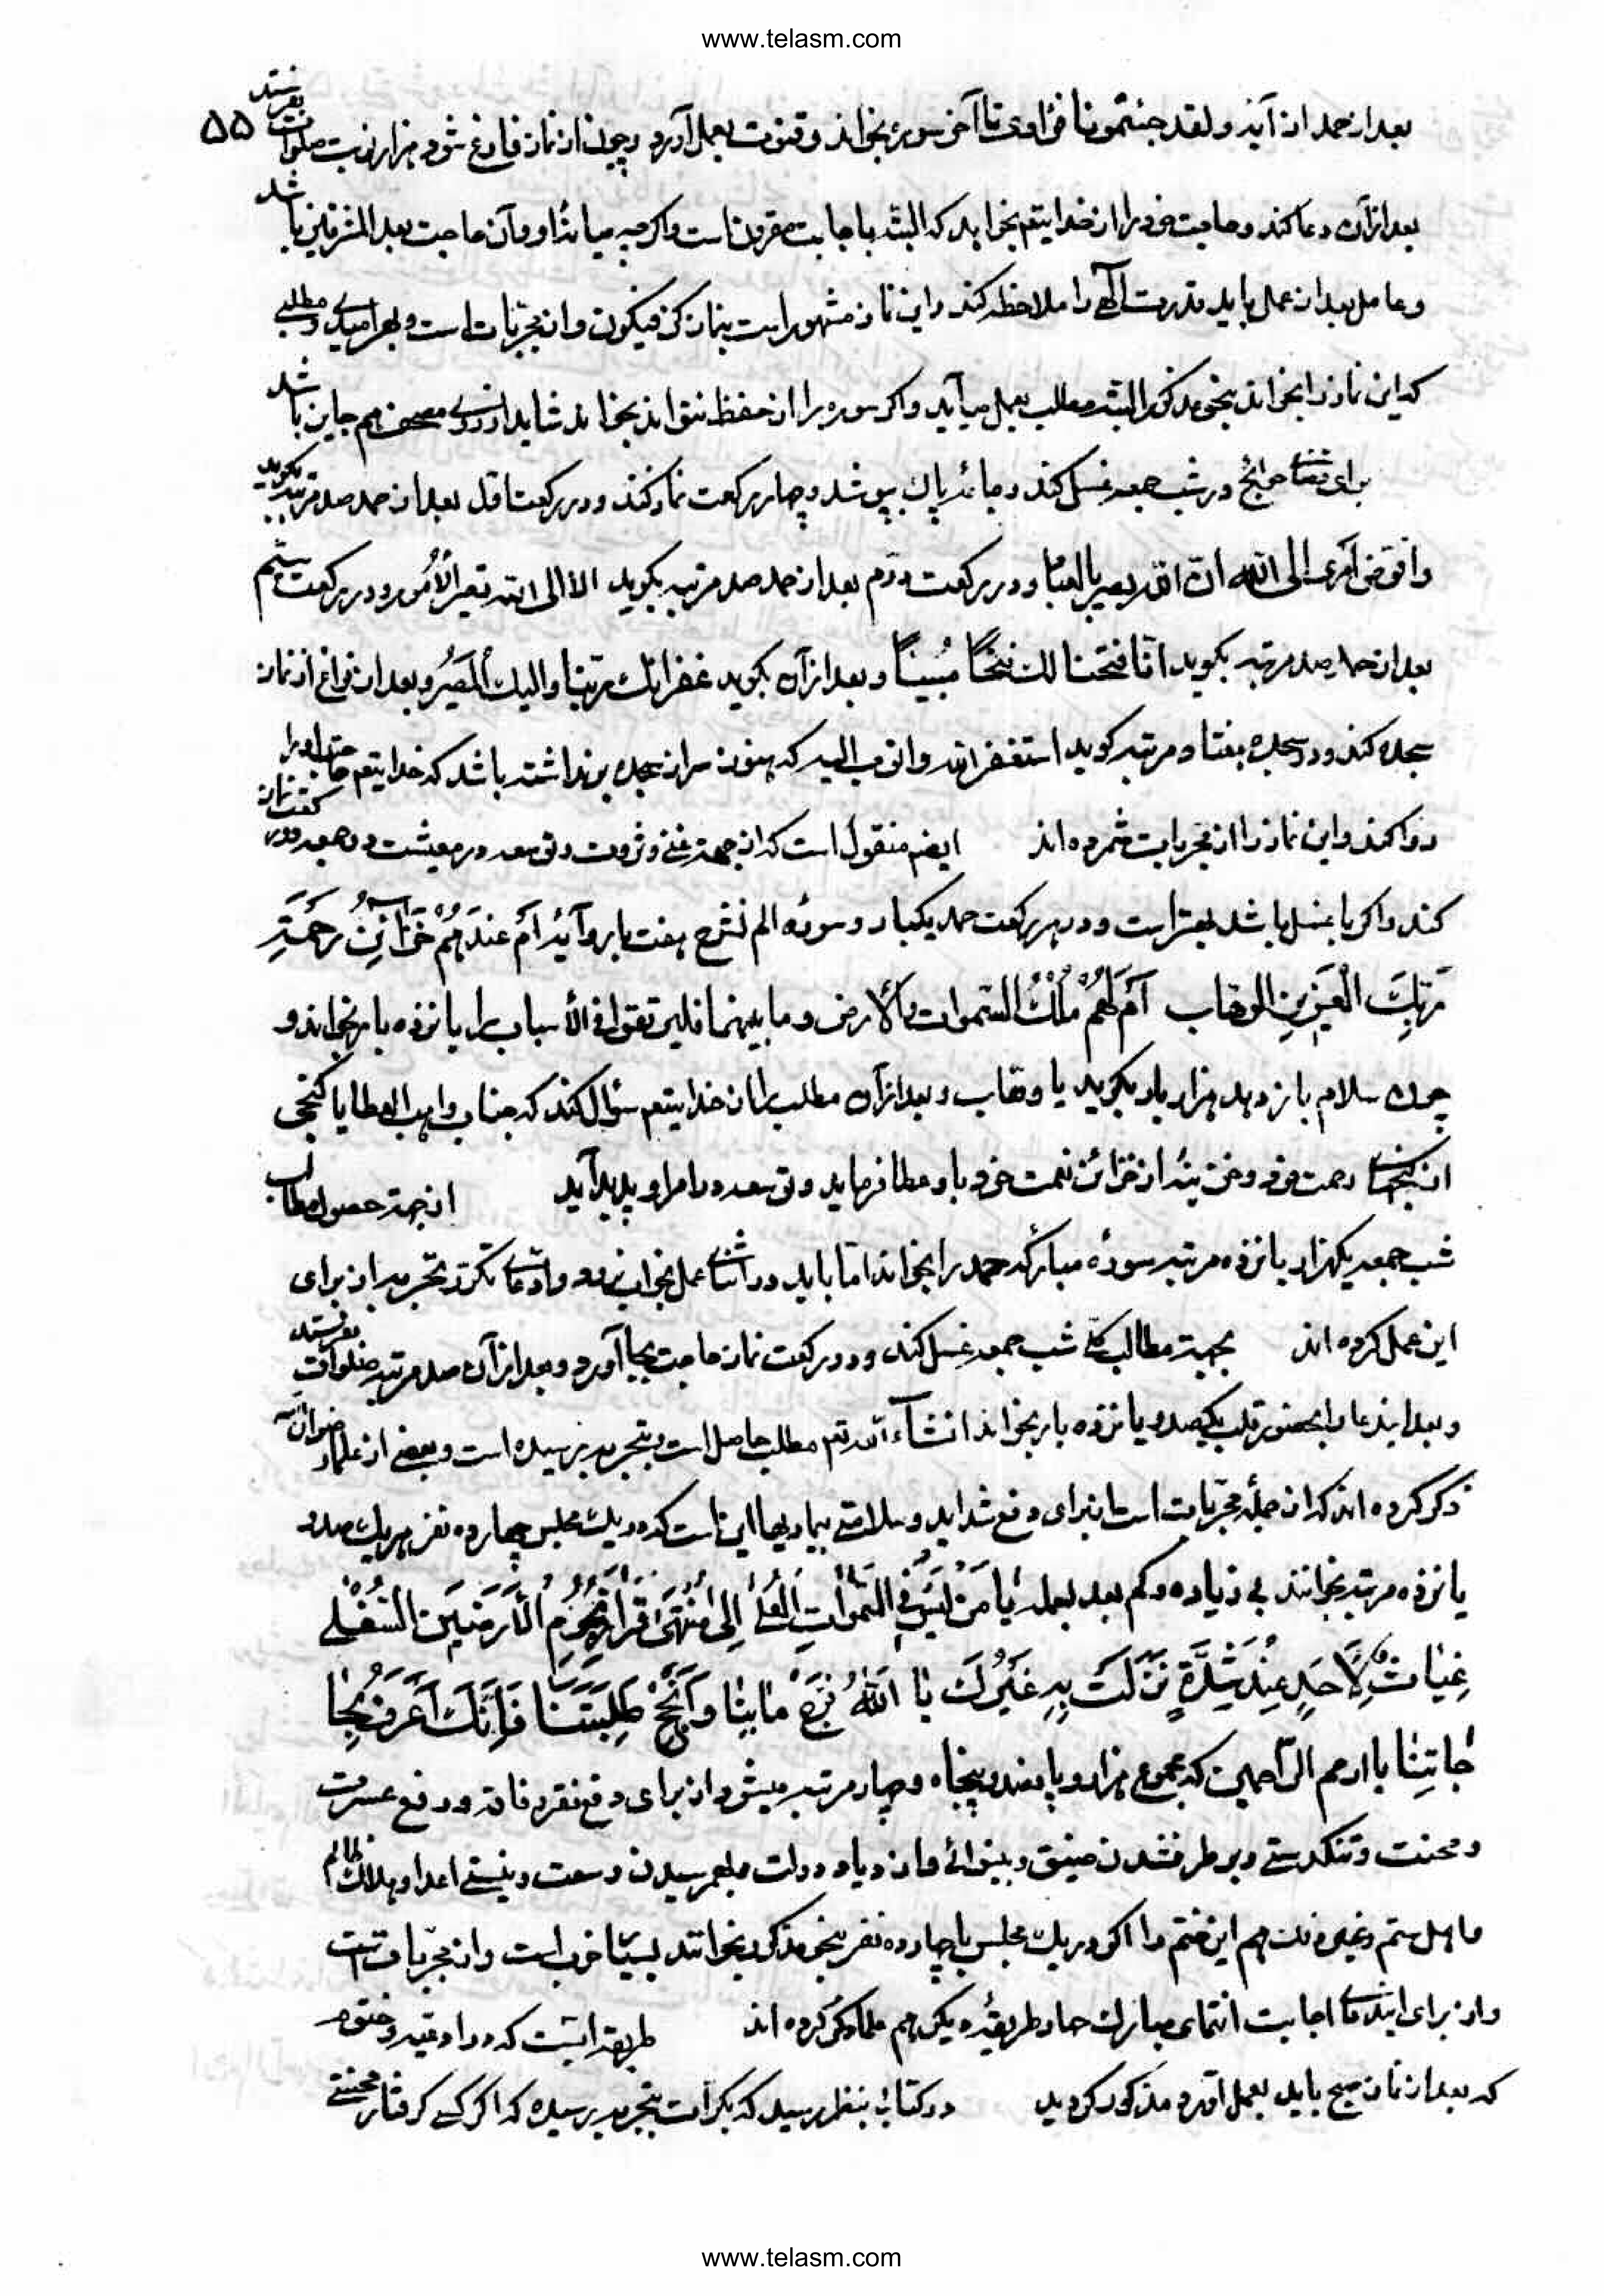 www.telasm.com
۵۵
بعد از حمد از آیه و لقد جئتمونا فرادی تا آخر سوره بخواند و قنوت بعمل آورد و چون از نماز فارغ شود هزار نوبت صلوات بفرستد
بعد از آن دعا کند و حاجت خود را از خدایتعم بخواهد که البته باجابت مقرونست و اگرچه میانهٔ او و آن حاجت بعد المشرقین باشد
و عامل بعد از عمل باید قدرت آلهی را ملاحظه کند و این نماز مشهور است بنماز کن فیکون و از مجربات است و بهر امیدی و مطلبی
که این نماز را بخواند بنحو مذکور البته مطلب بعمل میآید و اگر سوره را از حفظ نتواند بخواند شاید از روی مصحف هم جایز باشد
برای قضاء حوائج در شب جمعه غسل کند و جامهٔ پاک بپوشد و چهار رکعت نماز کند و در رکعت اول بعد از حمد صد مرتبه بگوید
و افوّض امری الی الله ان الله بصیر بالعباد و در رکعت دوّم بعد از حمد صد مرتبه بگوید الا الی الله تصیر الأمور و در رکعت سیّم
بعد از حمد صد مرتبه بگوید انّا فتحنا لك فتحًا مُبینًا و بعد از آن بگوید غفرانك ربّنا و الیك المصیر و بعد از فراغ از نماز
سجده کند و در سجده هفتاد مرتبه گوید استغفر الله و اتوب الیه که هنوز سر از سجده برنداشته باشد که خدایتعم حاجت او را
روا کند و این نماز را از مجربات شمرده اند ایضم منقول است که از جهة غنی و ثروت و توسعه در معیشت در جمعه دو رکعت نماز
کند و اگر با غسل باشد بهتر است و در هر رکعت حمد یکبار و سورهٔ الم نشرح هفت بار و آیهٔ اَم عِندَهُم خَزائِنُ رَحمَةِ
رَبِّكَ العَزیزِ الوهّاب اَم لَهُم مُلكُ السّموات والأرض و ما بینهما فلیرتقوا فی الأسباب را پانزده بار بخواند و
چون سلام باز دهد هزار بار بگوید یا وهّاب و بعد از آن مطلب را از خدایتعم سؤال کند که جناب واهب العطایا گنجی
از گنجهای رحمت خود و خزینهٔ از خزائن نعمت خود باو عطا فرماید و توسعه در امر او پدید آید از جهة حصول مطالب
شب جمعه یکهزار پانزده مرتبه سورهٔ مبارکه حمد را بخواند امّا باید در اثنای عمل بخواب نرود و ادّعای تجربه از برای
این عمل کرده اند بجهة مطالب کلّی شب جمعه غسل کند و دو رکعت نماز حاجت بجا آورد و بعد از آن صد مرتبه صلوات بفرستد
و بعد ایندعا را بحضور قلب یکصد و پانزده بار بخواند انشآء الله تعم مطلب حاصل است و بتجربه رسیده است و بعضی از علماء رضوان الله
ذکر کرده اند که از جملهٔ مجرّبات است از برای دفع شداید و سلامتی بیماریها این است که در یك مجلس چهارده نفر هر یك صد و
یانزده مرتبه بخوانند بی زیاده و کم بعد بعمله یا مَن لَیسَ فِی السَّمواتِ العُلی اِلی مُنتَهی قَرارِ تُخُومِ الأرَضینَ السُّفلی
غِیاثٌ لِأحَدٍ عِندَ شِدَّةٍ نَزَلَت بِهِ غَیرُكَ یا اللهُ فَرِّج مابِنا وَاَنجِح طَلِبَتَنا فَاِنَّكَ اَعرَفُ بِحا
جاتِنا یا ارحم الرّاحمین که مجموع هزار و پانصد و پنجاه و چهار مرتبه میشود از برای دفع فقر و فاقه و رفع عسرت
و محنت و تنگدستی و برطرف شدن ضیق و بینوائی و ازدیاد دولت و بهمرسیدن وسعت و نیستی اعدا و هلاك ظالم
و اهل ستم و غیر ذلك هم این ختم را اگر در یك مجلس با چهارده نفر بنحو مذکور بخوانند بسیار خوب است و از مجرّبات است
و از برای ایندعای اجابت انتمای مبارك چهار طریقهٔ دیگر هم علما ذکر کرده اند طریقه اینست که در ادعیه و ختوم
که بعد از نماز صبح باید بعمل آورد مذکور گردید در کتابی بنظر رسید که بکرّات بتجربه رسیده که اگر کسی گرفتار محنتی
www.telasm.com